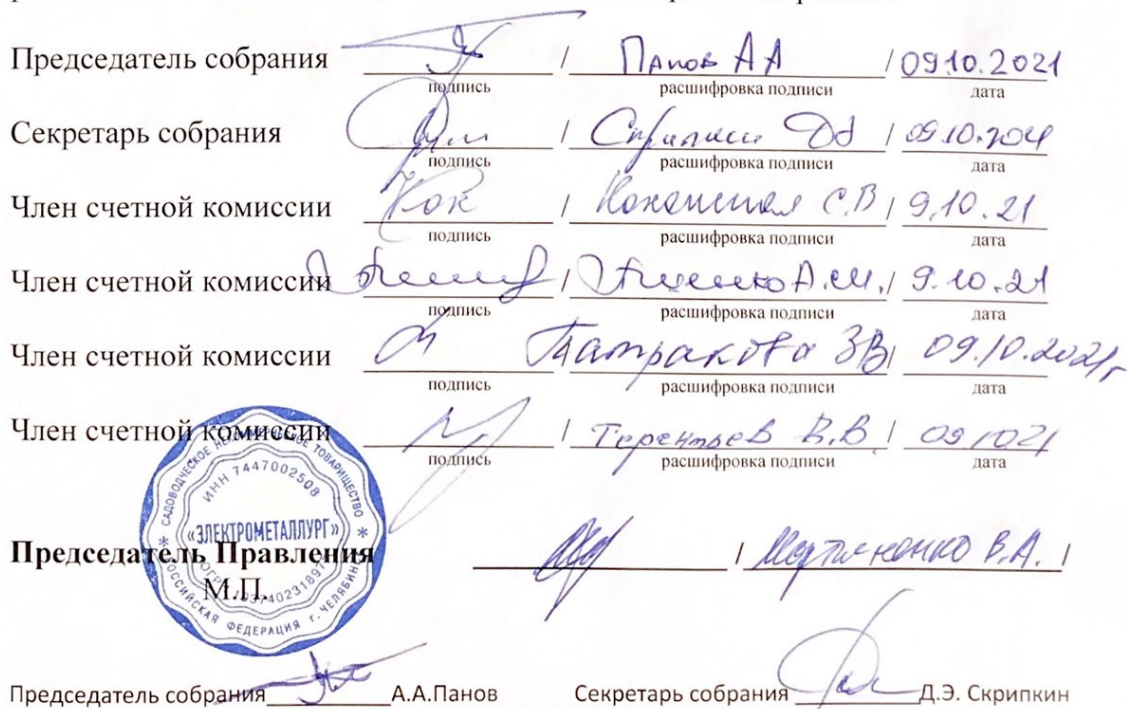 Председатель собрания / Панов А А / 09.10.2021
подпись расшифровка подписи дата
Секретарь собрания / / 09.10.2021
подпись расшифровка подписи дата
Член счетной комиссии Кок / С.В / 9.10.21
подпись расшифровка подписи дата
Член счетной комиссии / А.М. / 9.10.21
подпись расшифровка подписи дата
Член счетной комиссии ЗВ / 09.10.2021г
подпись расшифровка подписи дата
Член счетной комиссии / Терентьев В.В / 09 1021
подпись расшифровка подписи дата
САДОВОДЧЕСКОЕ НЕКОММЕРЧЕСКОЕ ТОВАРИЩЕСТВО
ИНН 7447002508
«ЭЛЕКТРОМЕТАЛЛУРГ»
РОССИЙСКАЯ ФЕДЕРАЦИЯ Г. ЧЕЛЯБИНСК
Председатель Правления / В.А. /
М.П.
Председатель собрания А.А.Панов Секретарь собрания Д.Э. Скрипкин